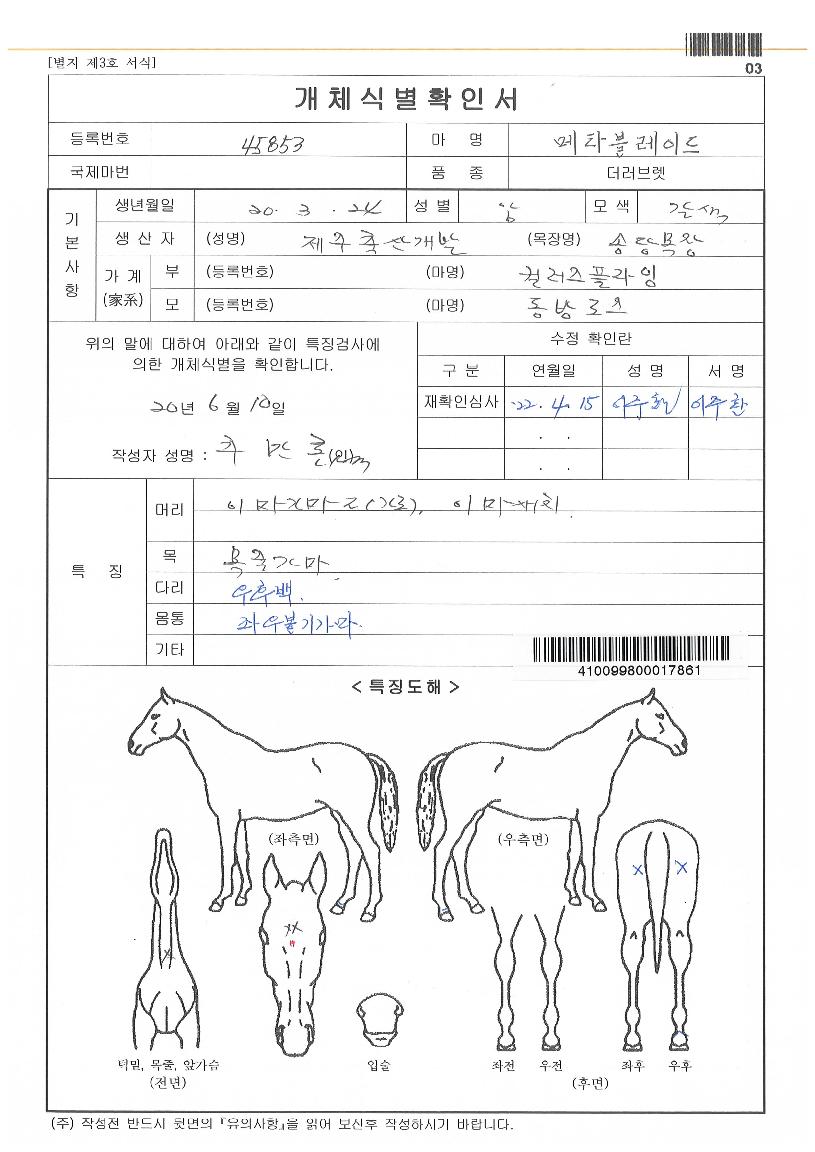 [별지 제3호 서식]
03
개체식별확인서
등록번호 45853 마 명 메타블레이드
국제마번 품 종 더러브렛
기본사항
생년월일 20. 3. 24 성별 암 모색 갈색
생산자 (성명) 제주축산개발 (목장명) 송당목장
가계(家系) 부 (등록번호) (마명) 컬러즈플라잉
모 (등록번호) (마명) 동방로즈
위의 말에 대하여 아래와 같이 특징검사에
의한 개체식별을 확인합니다.
20년 6월 10일
작성자 성명 :
수정 확인란
구 분 연월일 성 명 서 명
재확인심사 22. 4. 15 이주환 이주환
. .
. .
특 징
머리
목 목줄가마
다리 우후백.
몸통 좌우볼기가마.
기타
410099800017861
< 특징도해 >
(좌측면) (우측면)
턱밑, 목줄, 앞가슴 입술 좌전 우전 좌후 우후
(전면) (후면)
(주) 작성전 반드시 뒷면의 『유의사항』을 읽어 보신후 작성하시기 바랍니다.